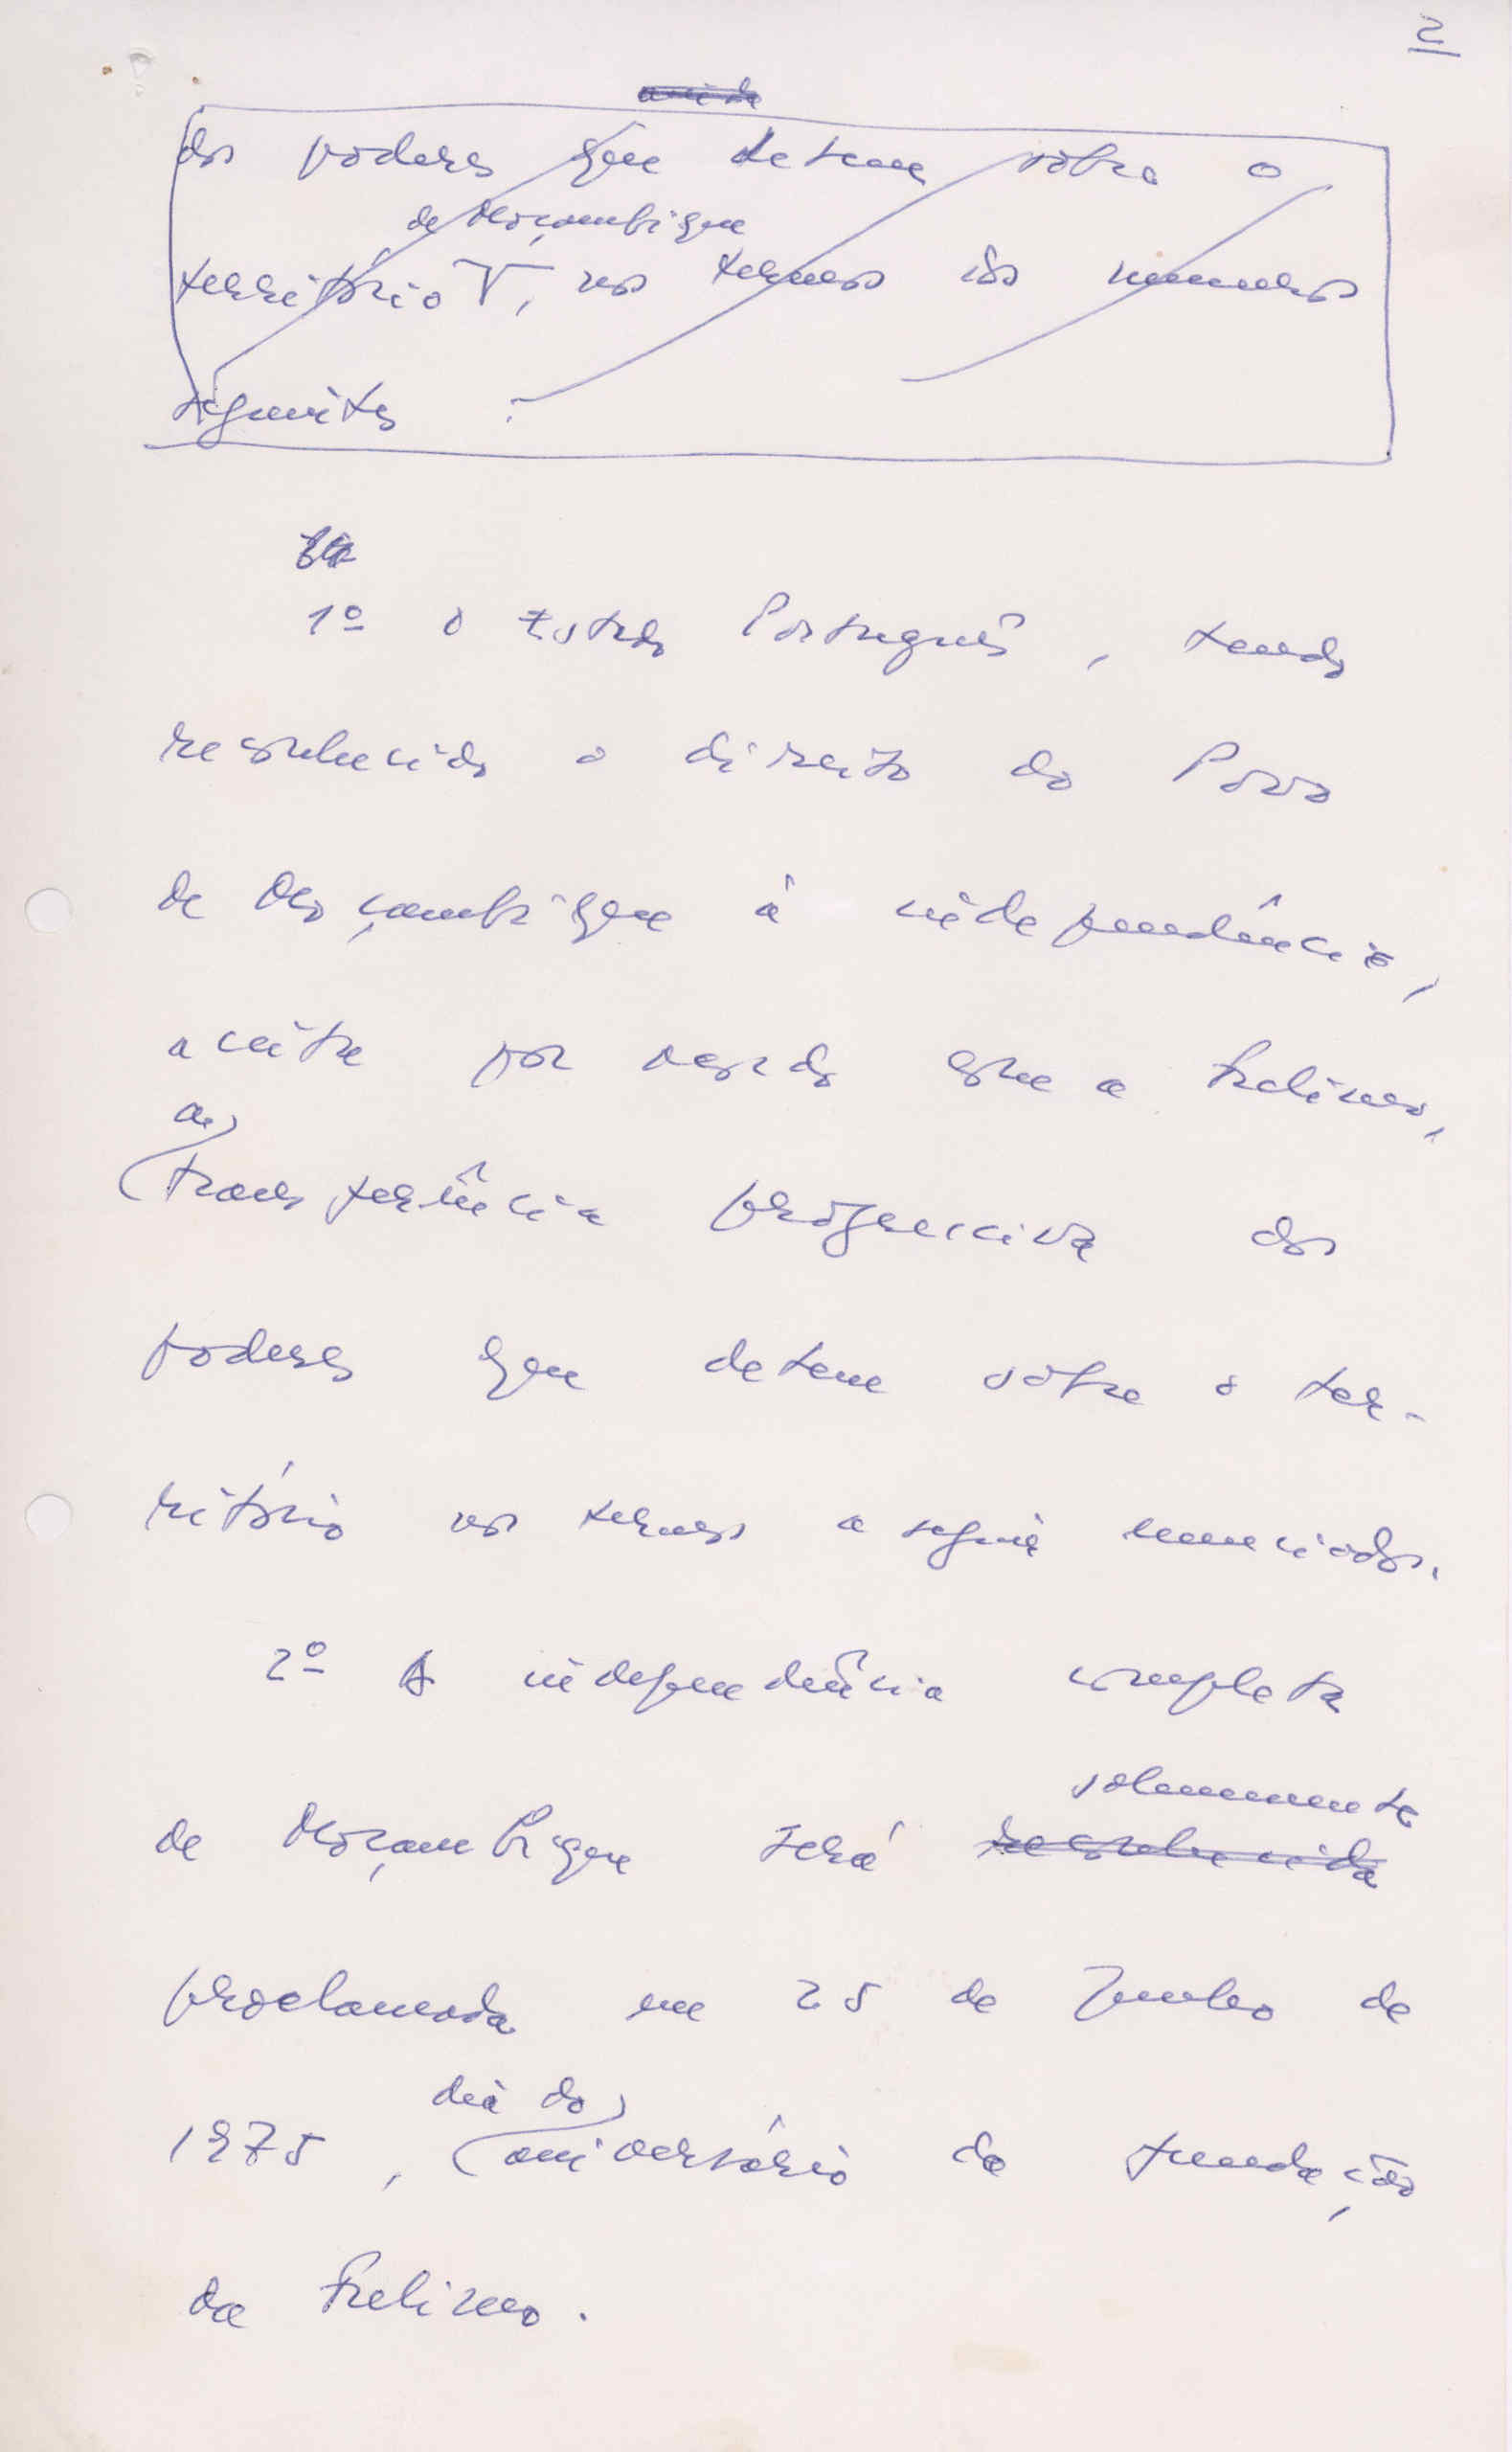 2
ainda
dos poderes que detem sobre o
de Moçambique
território, nos termos dos numeros
seguintes :
1º O Estado Português, tendo
reconhecido o direito do Povo
de Moçambique à independência,
aceita por acordo com a Frelimo,
a
transferência progressiva dos
poderes que detem sobre o ter-
ritório nos termos a seguir enunciados.
2º A independência completa
solenemente
de Moçambique será reconhecida
proclamada em 25 de Junho de
dia do
1975, aniversário da fundação
da Frelimo.